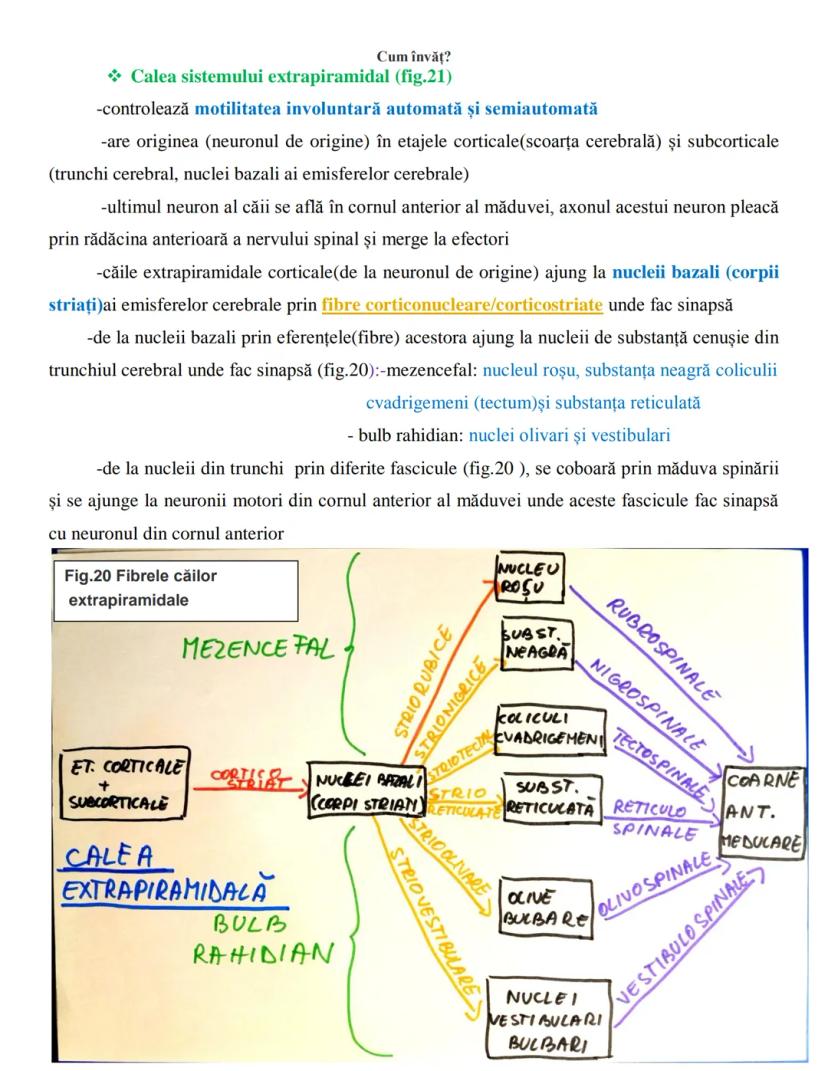 Cum învăț?
❖ Calea sistemului extrapiramidal (fig.21)
-controlează motilitatea involuntară automată și semiautomată
-are originea (neuronul de origine) în etajele corticale(scoarța cerebrală) și subcorticale
(trunchi cerebral, nuclei bazali ai emisferelor cerebrale)
-ultimul neuron al căii se află în cornul anterior al măduvei, axonul acestui neuron pleacă
prin rădăcina anterioară a nervului spinal și merge la efectori
-căile extrapiramidale corticale(de la neuronul de origine) ajung la nucleii bazali (corpii
striați)ai emisferelor cerebrale prin fibre corticonucleare/corticostriate unde fac sinapsă
-de la nucleii bazali prin eferențele(fibre) acestora ajung la nucleii de substanță cenușie din
trunchiul cerebral unde fac sinapsă (fig.20):-mezencefal: nucleul roșu, substanța neagră coliculii
cvadrigemeni (tectum)și substanța reticulată
- bulb rahidian: nuclei olivari și vestibulari
-de la nucleii din trunchi prin diferite fascicule (fig.20 ), se coboară prin măduva spinării
și se ajunge la neuronii motori din cornul anterior al măduvei unde aceste fascicule fac sinapsă
cu neuronul din cornul anterior
Fig.20 Fibrele căilor
extrapiramidale
MEZENCEFAL
ET. CORTICALE
+
SUBCORTICALE
CORTICO
STRIAT
NUCLEI BAZALI
(CORPI STRIAȚI)
CALEA
EXTRAPIRAMIDALĂ
BULB
RAHIDIAN
STRIORUBICE
STRIONIGRICE
STRIOTECTAL
STRIO
RETICULATE
STRIOOLIVARE
STRIOVESTIBULARE
NUCLEU
ROȘU
SUBST.
NEAGRĂ
COLICULI
CVADRIGEMENI
SUBST.
RETICULATĂ
OLIVE
BULBARE
NUCLEI
VESTIBULARI
BULBARI
RUBROSPINALE
NIGROSPINALE
TECTOSPINALE
RETICULO
SPINALE
OLIVOSPINALE
VESTIBULOSPINALE
COARNE
ANT.
MEDULARE